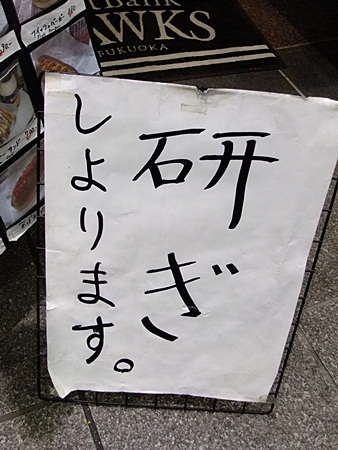 研ぎ
しよります。
Bank
HAWKS
FUKUOKA